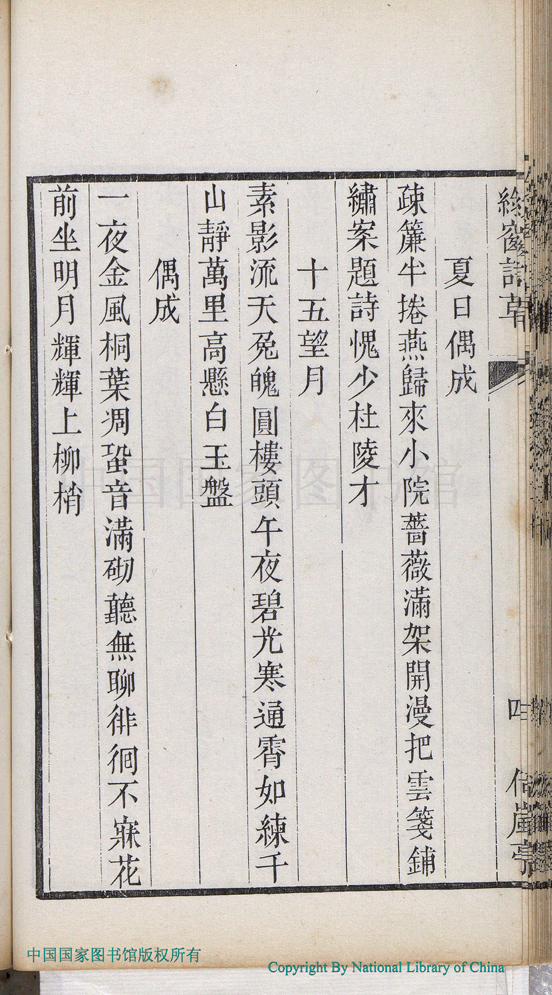 綠窗詩草
夏日偶成
疎簾半捲燕歸來小院薔薇滿架開漫把雲箋鋪
繡案題詩愧少杜陵才
十五望月
素影流天兔魄圓樓頭午夜碧光寒通霄如練千
山靜萬里高懸白玉盤
偶成
一夜金風桐葉凋蛩音滿砌聽無聊徘徊不寐花
前坐明月輝輝上柳梢
四
中国国家图书馆
中国国家图书馆版权所有
Copyright By National Library of China